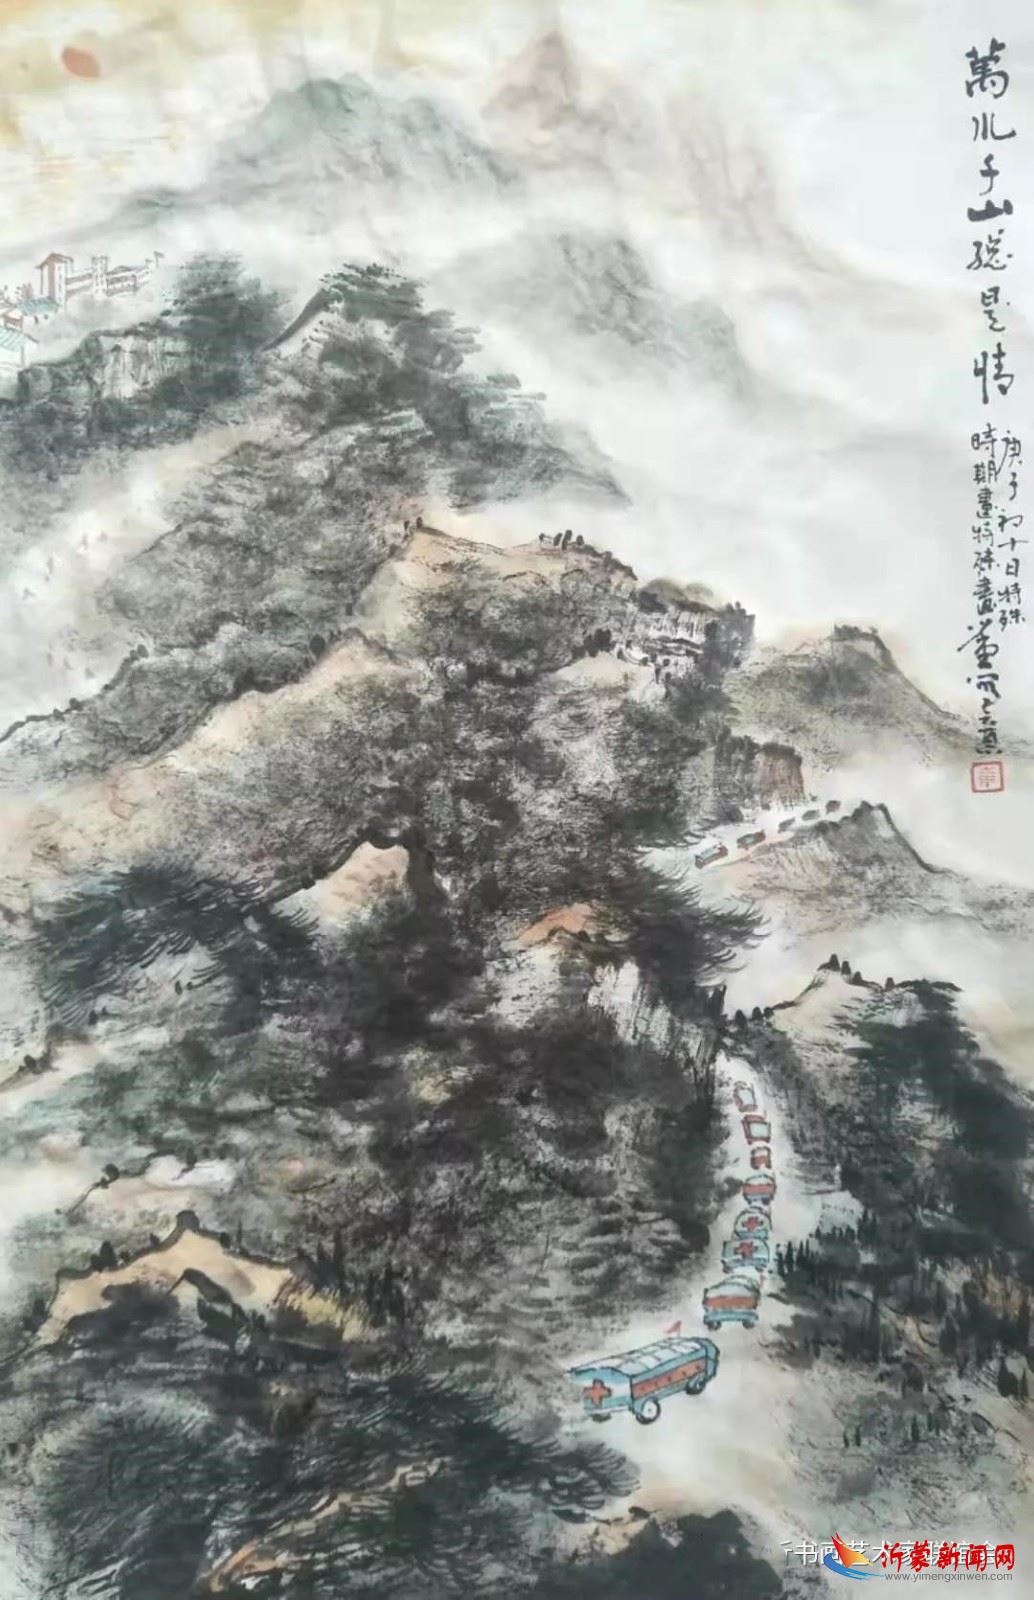 萬水千山總是情
庚子初十日特殊
時期畫特殊畫
沂蒙新闻网
www.yimengxinwen.com